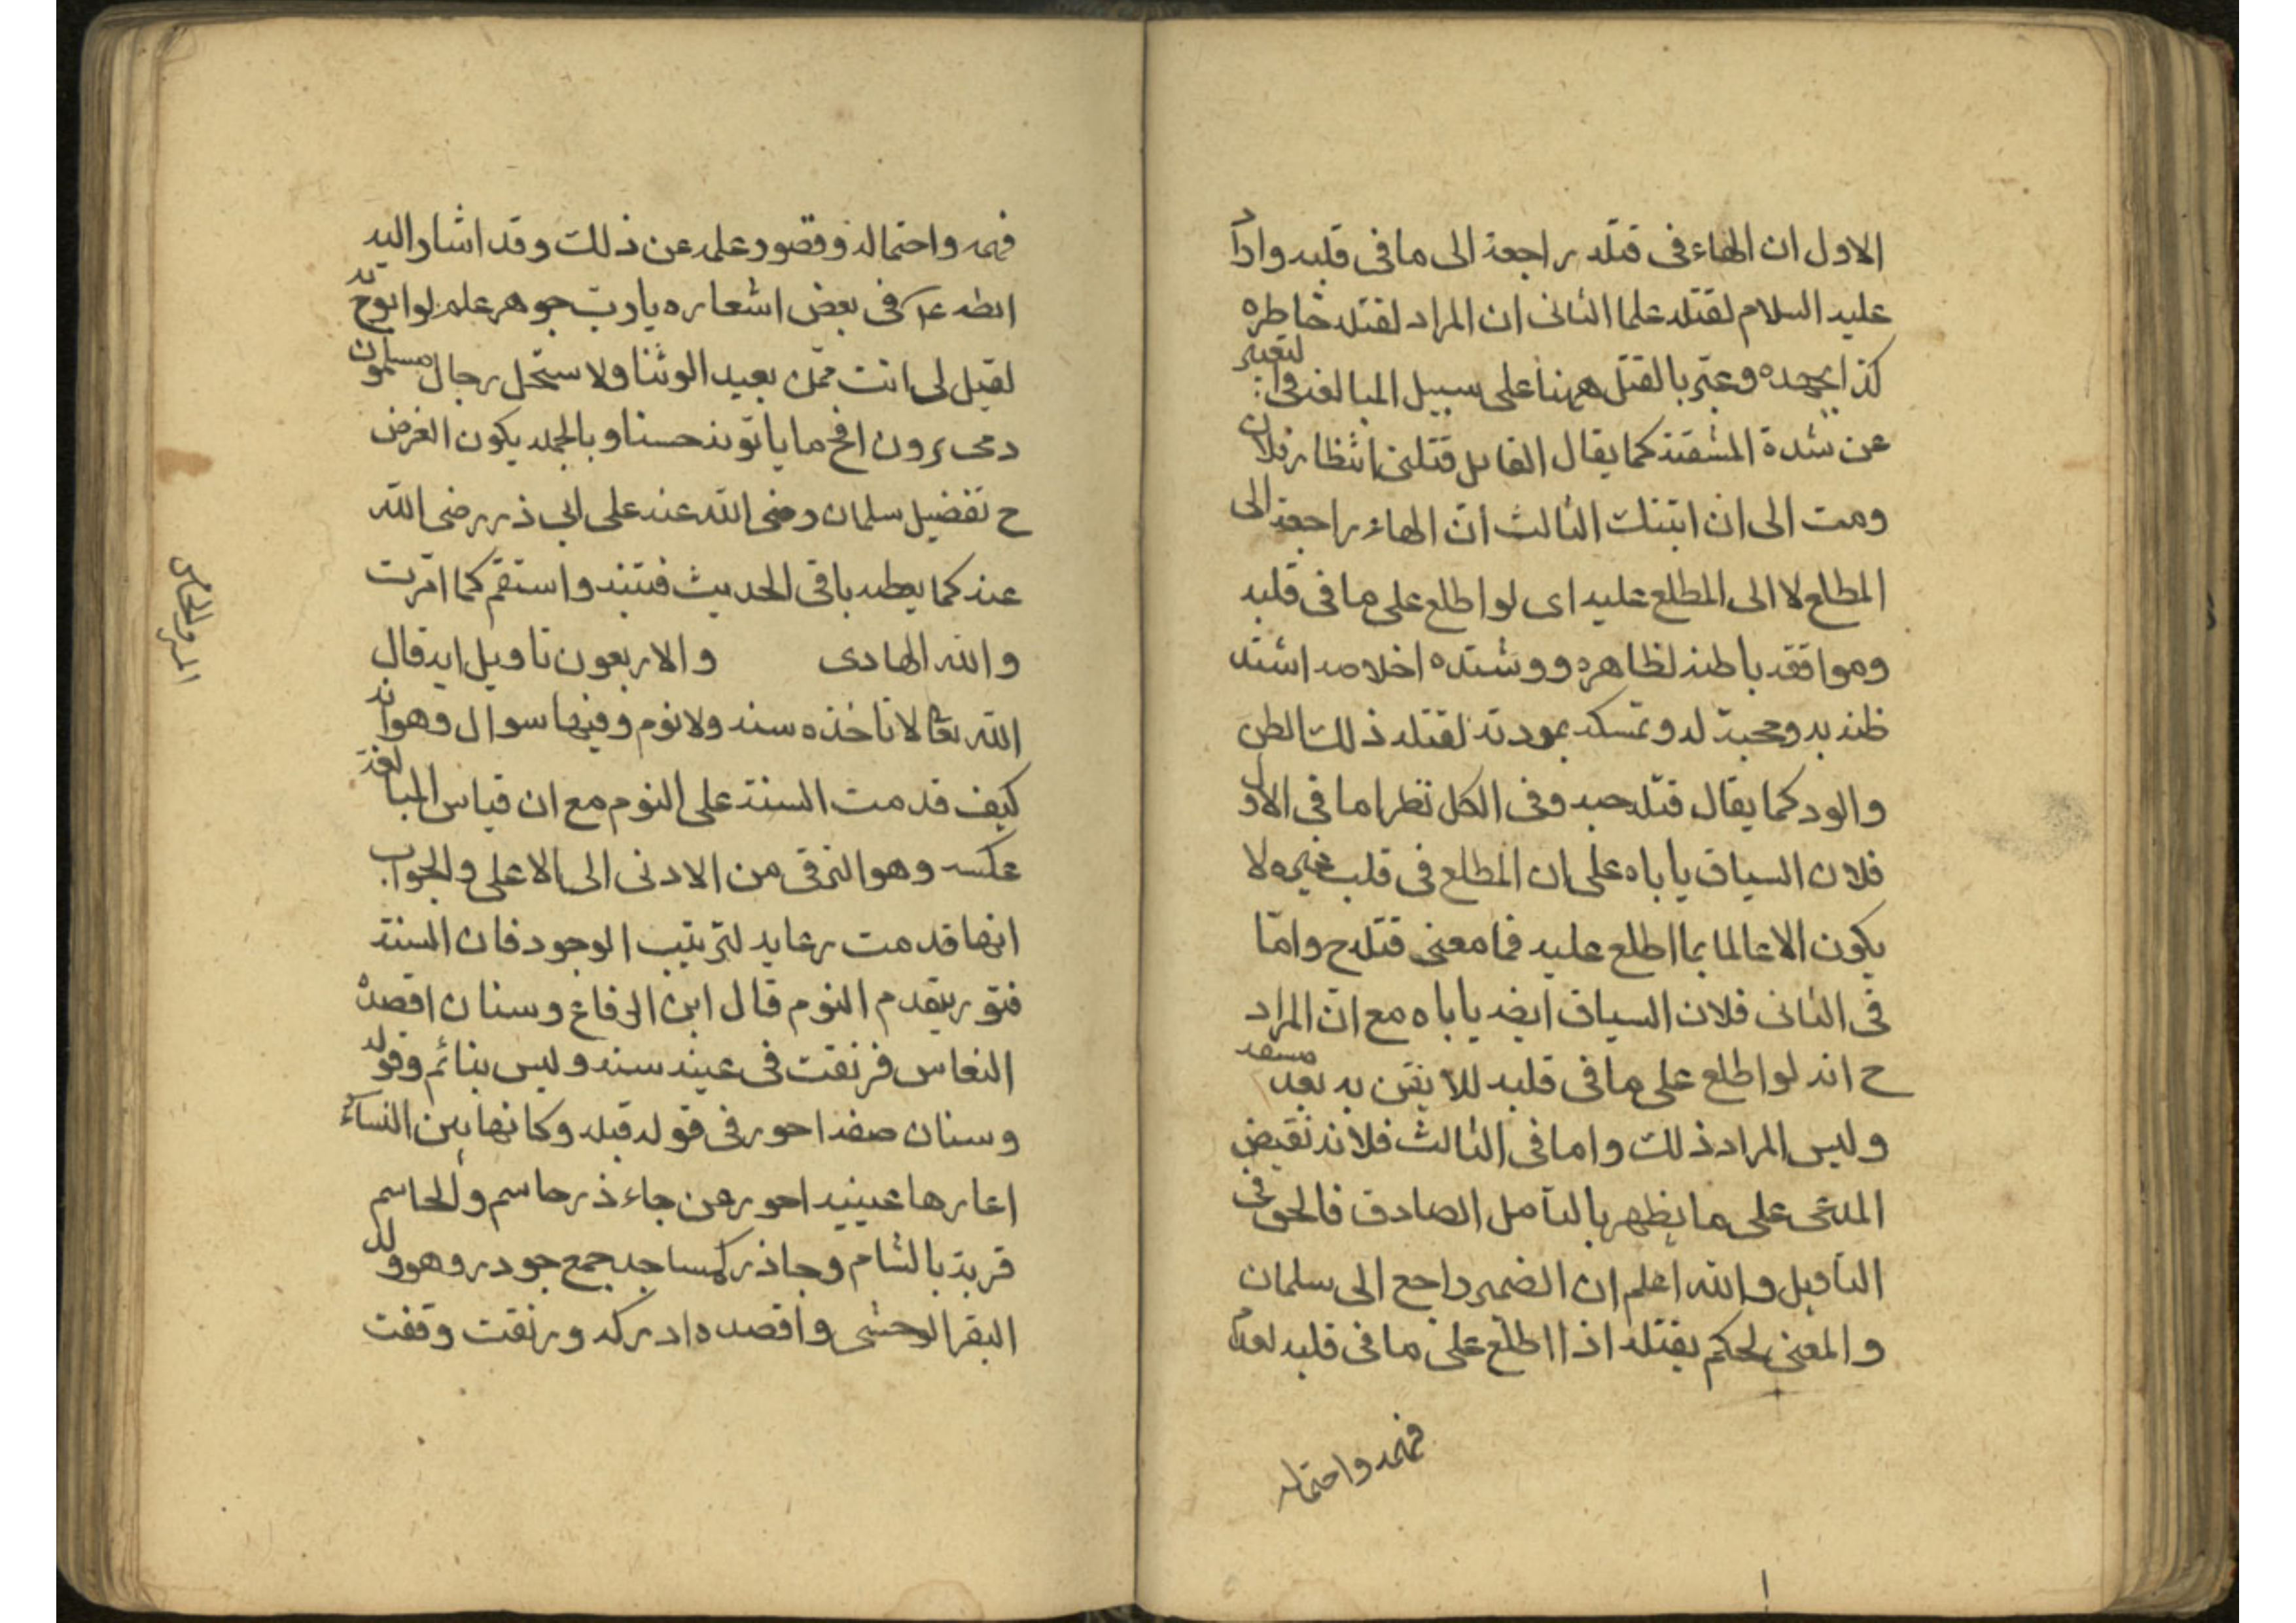 الاول ان الهاء فى قتله راجعة الى ما فى قلبه واراد
عليه السلام لقتله علما الثانى ان المراد لقتله خاطره
كذا يجده وعبّر بالقتل ههنا على سبيل المبالغة فى التعبير
عن شدة المشقة كما يقال القايل قتلنى انتظار فلان
ومت الى ان اتيتك الثالث انّ الهاء راجعة الى
المطلع لا الى المطلع عليه اى لو اطلع على ما فى قلبه
وموافقة باطنه لظاهره ووشدّه اخلاصه اشتد
ظنه به ومحبة له وتمسكه بمودته لقتله ذلك الظن
والود كما يقال قتله حبه وفى الكل نظر اما فى الاول
فلان السياق ياباه على ان المطلع فى قلب غيره لا
يكون الا عالما بما اطلع عليه فما معنى قتله ح وامّا
فى الثانى فلان السياق ايضه ياباه مع انّ المراد
ح انه لو اطلع على ما فى قلبه للايقن به بعد مشقة
وليس المراد ذلك واما فى الثالث فلانه نقيض
المدعى على ما يظهر بالتامل الصادق فالحق فى
التاويل والله اعلم ان الضمير راجع الى سلمان
والمعنى لحكم بقتله اذا اطلع على ما فى قلبه لعدم
فهمه واحتماله
فهمه واحتماله وقصور علمه عن ذلك وقد اشار اليه
فى بعض اشعاره يا ربّ جوهر علم لو ابوح به
لقيل لى انت ممّن يعبد الوثنا ولاستحل رجال مسلمون
دمى يرون اقبح ما ياتونه حسنا وبالجملة يكون الغرض
ح تفضيل سلمان رضى الله عنه على ابى ذر رضى الله
عنه كما يعطيه باقى الحديث فتنبه واستقم كما امرت
والله الهادى والاربعون تاويل ايه قال
الله تعالى لا تاخذه سنة ولا نوم وفيها سوال وهو انه
كيف قدمت السنة على النوم مع ان قياس المبالغة
عكسه وهو الترقى من الادنى الى الاعلى والجواب
انها قدمت رعاية لترتيب الوجود فان السنة
فتور يتقدم النوم قال ابن الرفاع وسنان اقصده
النعاس فرنقت فى عينه سنة وليس بنائم وقوله
وسنان صفة احور فى قوله قبله وكانها بين النساء
اعارها عينيه احور من جاءذر جاسم والجاسم
قرية بالشام وجاذر كمساجد جمع جوذر وهو ولد
البقر الوحشى واقصده ادركه ورنقت وقفت